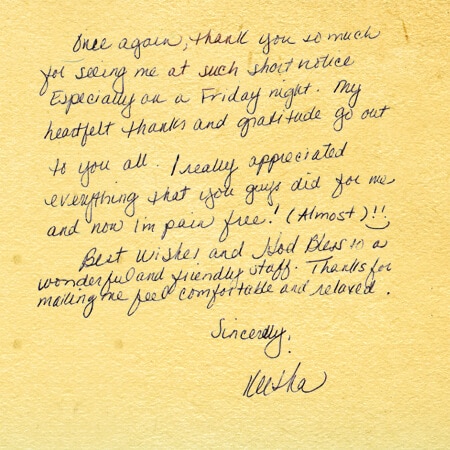 Once again, thank you so much
for seeing me at such short notice
Especially on a Friday night. My
heartfelt thanks and gratitude go out
to you all. I really appreciated
everything that you guys did for me
and now i'm pain free! (Almost)!!
Best Wishes and God Bless to a
wonderful and friendly staff. Thanks for
making me feel comfortable and relaxed.
Sincerely,
Keisha